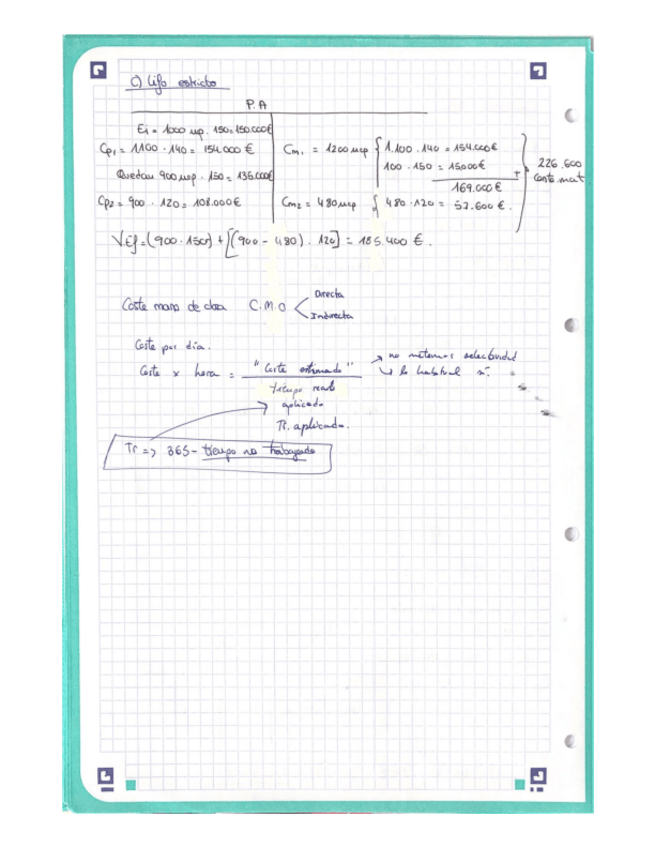 C) Lifo estricto
P.A
Ei = 1000 up . 150 = 150.000€
Cp1 = 1100 . 140 = 154.000 €
Cm1 = 1200 mp { 1.100 . 140 = 154.000€
100 . 150 = 15000€ +
169.000 €
226.600
Coste mat
Quedan 900 mp . 150 = 135.000€
Cp2 = 900 . 120 = 108.000€
Cm2 = 480 mp { 480 . 120 = 57.600 €.
V.Ef = (900 . 150) + [(900 - 480) . 120] = 185.400 €.
Coste mano de obra C.M.O < Directa
Indirecta
Coste por dia.
Coste x hora = "Coste estimado"
tiempo real
aplicado
TR. aplicado.
→ no metemos selectividad
↳ lo habitual sí.
Tr => 365 - tiempo no trabajado